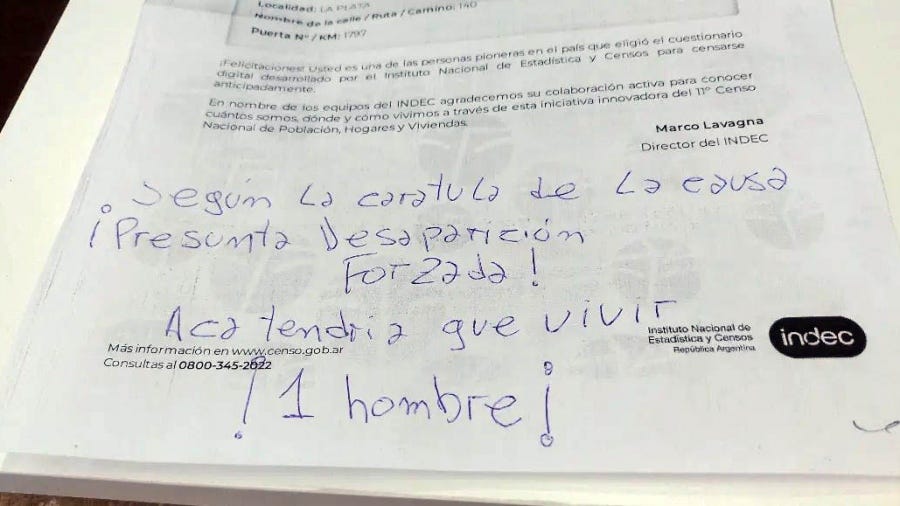 Localidad: LA PLATA
Nombre de la calle / Ruta / Camino: 140
Puerta Nº / KM: 1797
¡Felicitaciones! Usted es una de las personas pioneras en el país que eligió el cuestionario
digital desarrollado por el Instituto Nacional de Estadística y Censos para censarse
anticipadamente.
En nombre de los equipos del INDEC agradecemos su colaboración activa para conocer
cuántos somos, dónde y cómo vivimos a través de esta iniciativa innovadora del 11º Censo
Nacional de Población, Hogares y Viviendas.
Marco Lavagna
Director del INDEC
Según La caratula de La causa
¡Presunta Desaparición
Forzada!
Aca tendria que vivir
Más información en www.censo.gob.ar
Consultas al 0800-345-2022
Instituto Nacional de
Estadística y Censos
República Argentina
indec
!1 hombre¡